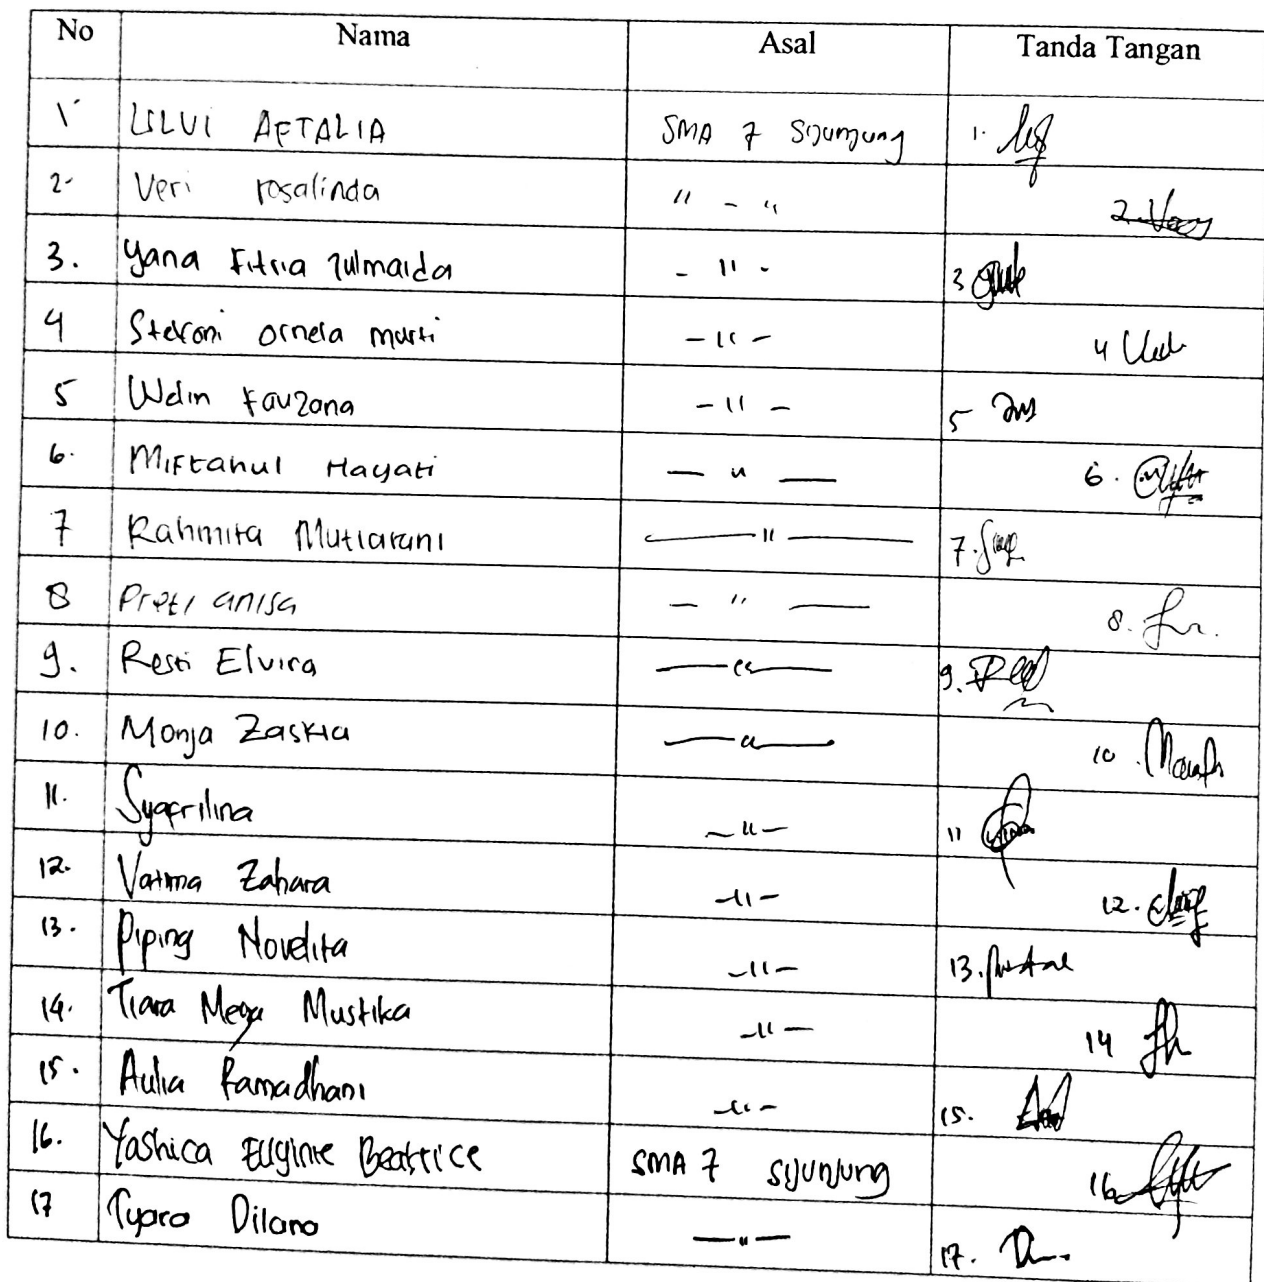 No Nama Asal Tanda Tangan
1. AFTALIA SMA 7 Sijunjung 1.
2. Veri rosalinda " - " 2.
3. Yana Fitria Zulmaida - " - 3
4 Stefani Ornela Marti - " - 4
5 Fauzana - " - 5
6. Miftahul Hayati - " - 6.
7 Rahmita Mutiarani - " - 7.
8 Preti anisa - " - 8.
9. Resti Elvira - " - 9.
10. Monja Zaskia - " - 10.
11. Syafrilina - " - 11
12. Vatma Zahara - " - 12.
13. Piping Novelita - " - 13.
14. Tiara Mega Mustika - " - 14
15. Aulia Ramadhani - " - 15.
16. Yashica Euginie Beatrice SMA 7 Sijunjung 16
17 Tyara Dilano - " - 17.